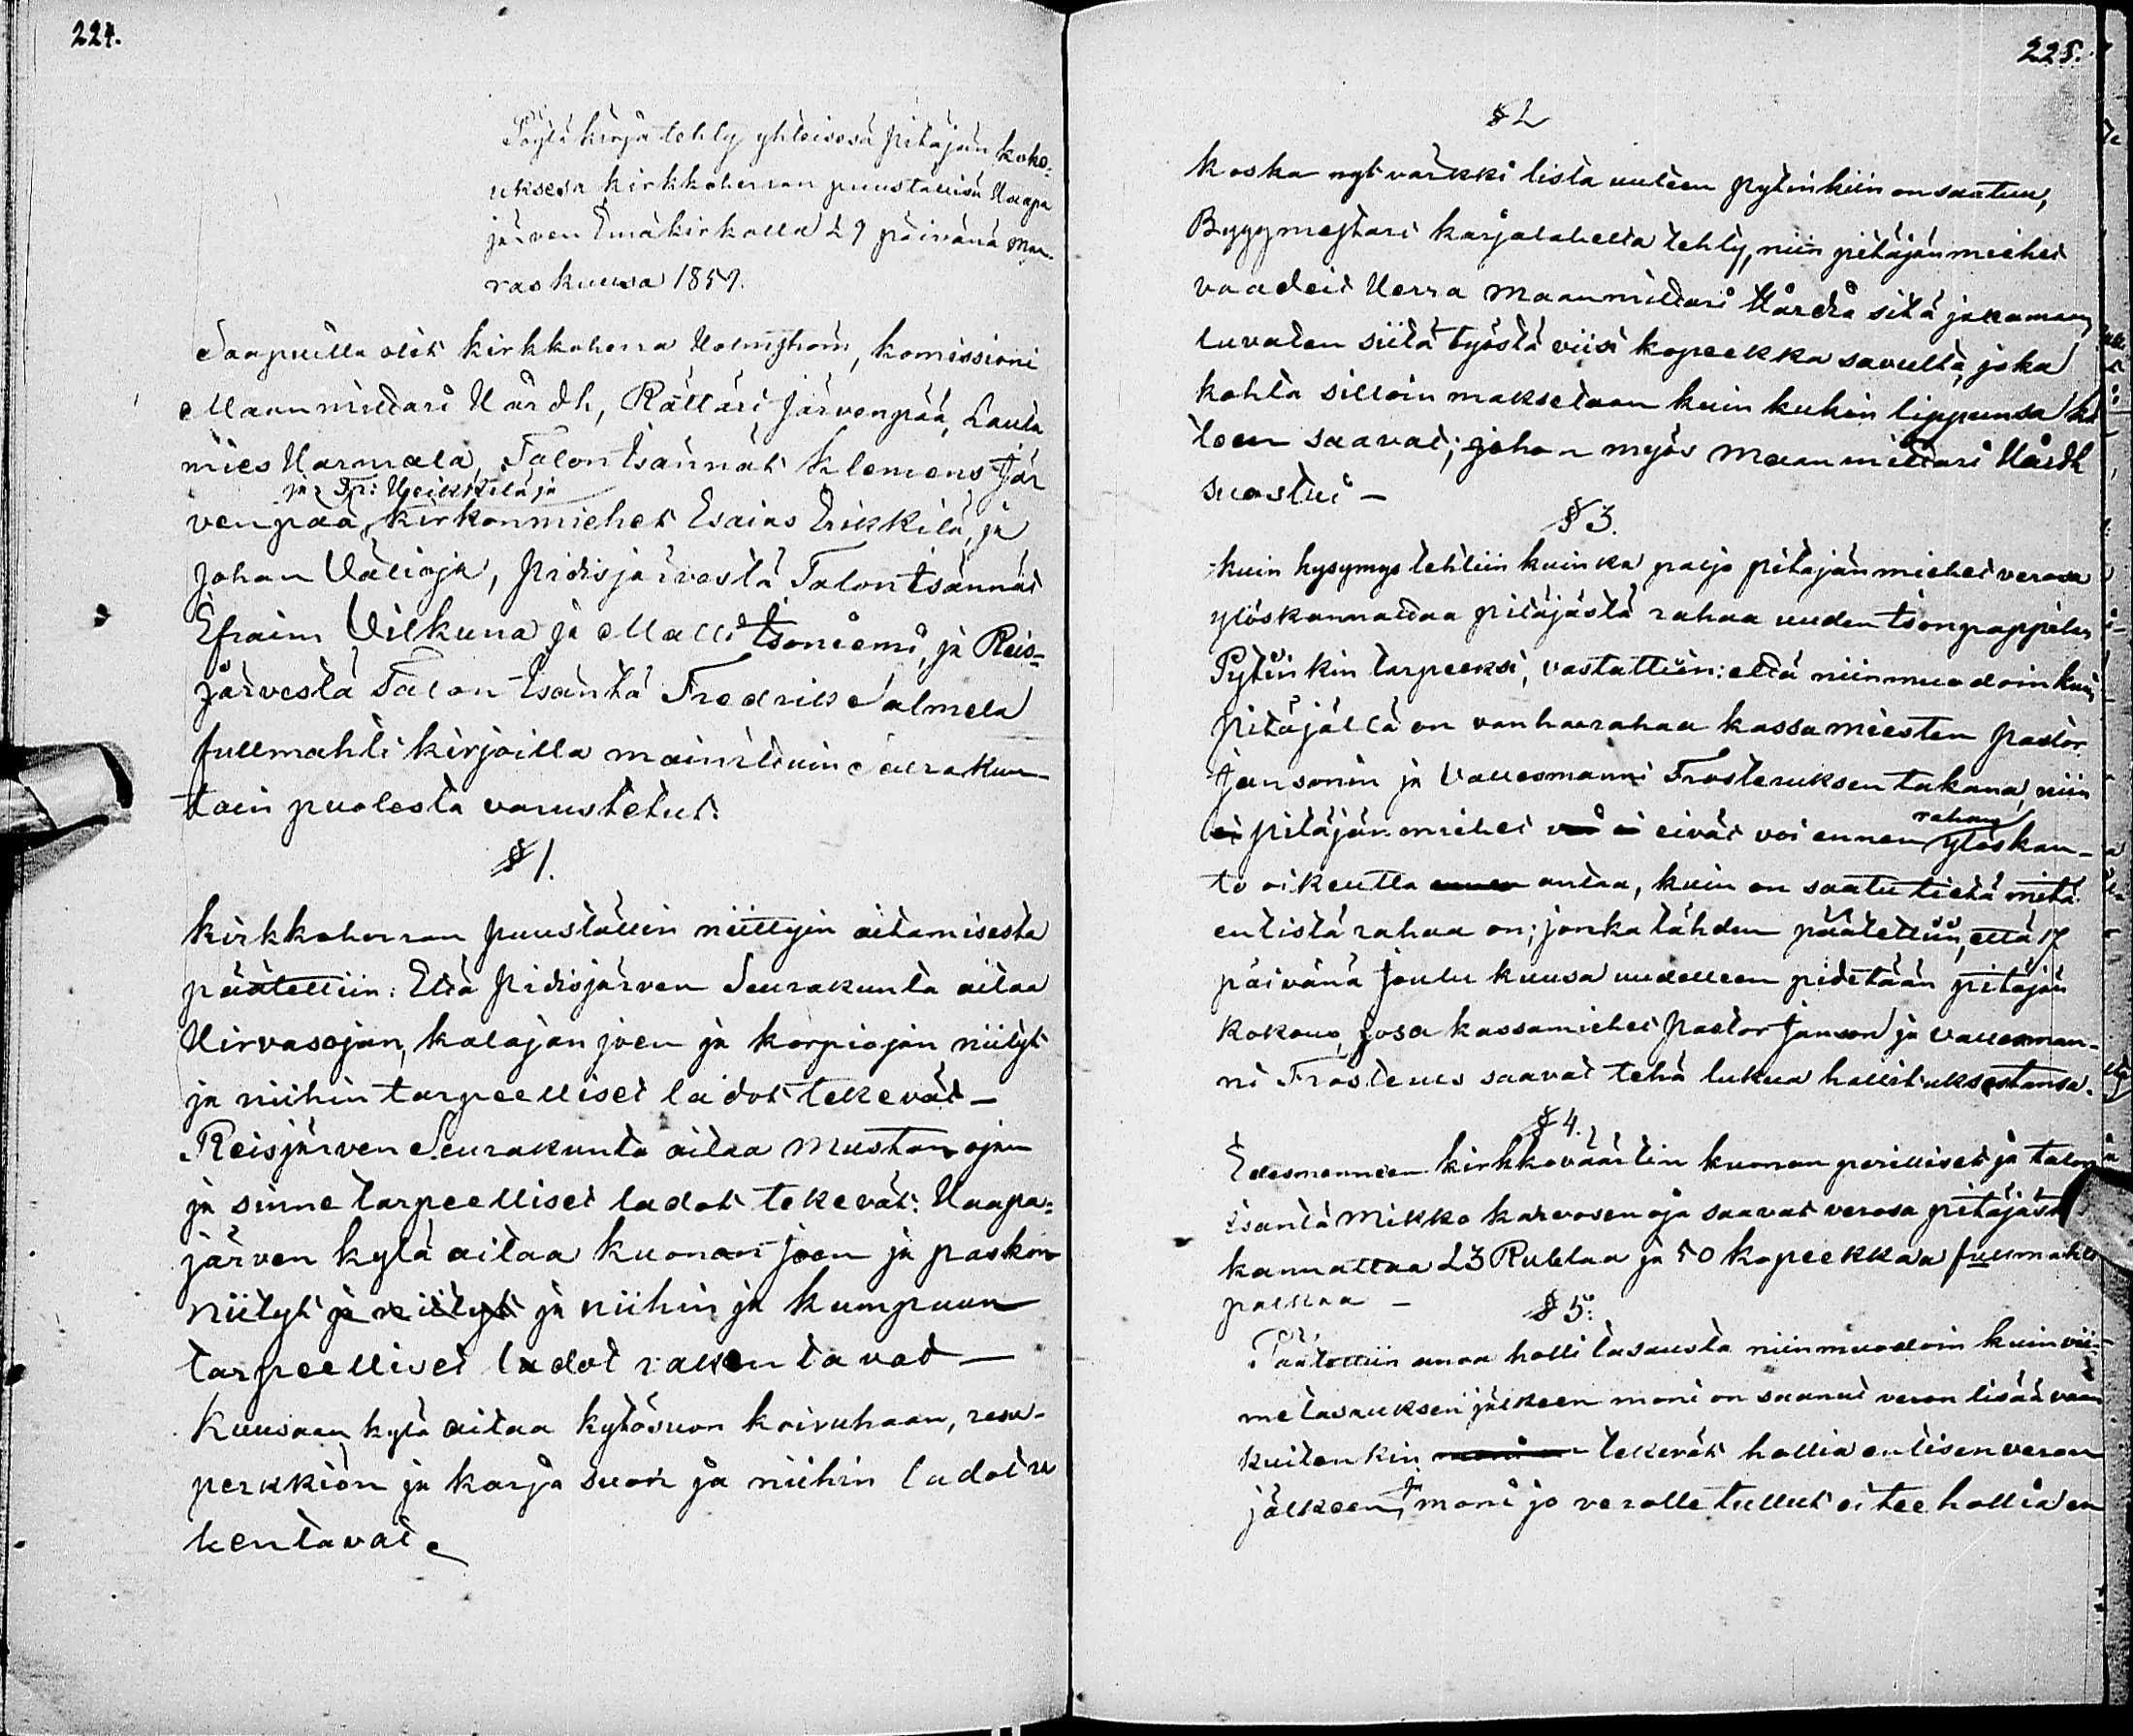 224.
Pöytä kirja tehty yhteisesä Pitäjän koko-
uksesa kirkkoherran puustallisa Haapa
järven Emäkirkolla 29 päivänä Mar-
raskuusa 1857.
Saapuilla olit kirkkoherra Holmström, komissioni
Maanmittari Hårdh, Rättäri Järvenpää, Lauta
mies Harmala, Talon Isännät Klemens Jär
ja Heikkilä ja
venpää, kirkonmiehet Esaias Erikkilä, ja
Johan Välioja, Pidisjärvestä Talon Isännät
Efraim Vilkuna ja Matti Isoniemi, ja Reis-
järvestä Talon Isäntä Fredrik Salmela
fullmahti kirjoilla mainittuin Seurakun-
tain puolesta varustetut.
§ 1.
kirkkoherran puustallin niittyin aitamisesta
päätettiin: Että Pidisjärven Seurakunta aitaa
Hirvasojan, kalajan joen ja korpiojan niityt
ja niihin tarpeelliset ladot tekevät –
Reisjärven Seurakunta aitaa Mustan ojan
ja sinne tarpeelliset ladot tekevät: Haapa-
järven kylä aitaa kuonan joen ja paskon
niityt ja niityt ja niihin ja kumpuun
tarpeelliset ladot rakentavat –
Kuusaan kylä aitaa kytösuon koivuhaan,
perkkiön ja karja suon ja niihin ladot ra
kentavat.
225.
§ 2
koska nyt värkki lista uuteen pytinkiin on saatuu,
Byggmestari karjalahelta tehty, niin pitäjänmiehet
vaadeit Herra Maanmittari Hårdhia sitä jakamaan
luvaten siitä työstä viisi kopeekka savulta, joka
kohta silloin maksetaan kuin kukin lippunsa kä
teen saavat; johon myös Maanmittari Hårdh
suostui –
§ 3.
kuin kysymys tehtiin kuinka paljo pitäjänmiehet verosa
ylöskannattaa pitäjästä rahaa uuden Isonpappilan
Pytinkin tarpeeksi, vastattiin: että niinmuodoin kuin
Pitäjällä on vanhaa rahaa kassamiesten Pastor
Jansonin ja Vallesmanni Frosteruksen takana, niin
ei pitäjänmiehet voi ei eivät voi ennen ylöskan-
rahan
to oikeutta ennen antaa, kuin on saatu tietä mitä
entistä rahaa on; jonka tähden päätettiin, että 17
päivänä Joulu kuusa uudelleen pidetään pitäjän
kokous, josa kassamiehet Pastor Janson ja Vallesman-
ni Frosterus saavat tehä lukua hallituksestansa.
§ 4.
Edesmenneen kirkkoväärtin kuonan perilliset ja talon
isäntä Mikko karvosen oja saavat verosa pitäjästä
kannattaa 23 Rublaa ja 50 kopeekkaa fullmahti
palkkaa –
§ 5:
Päätettiin anoa holli tasausta niinmuodoin kuin vii-
me tasauksen jälkeen moni on saanut veron lisää vaan
kuitenkin tekevät hollia entisen veron
jälkeen, ja moni jo verolle tullut ei tee hollia en